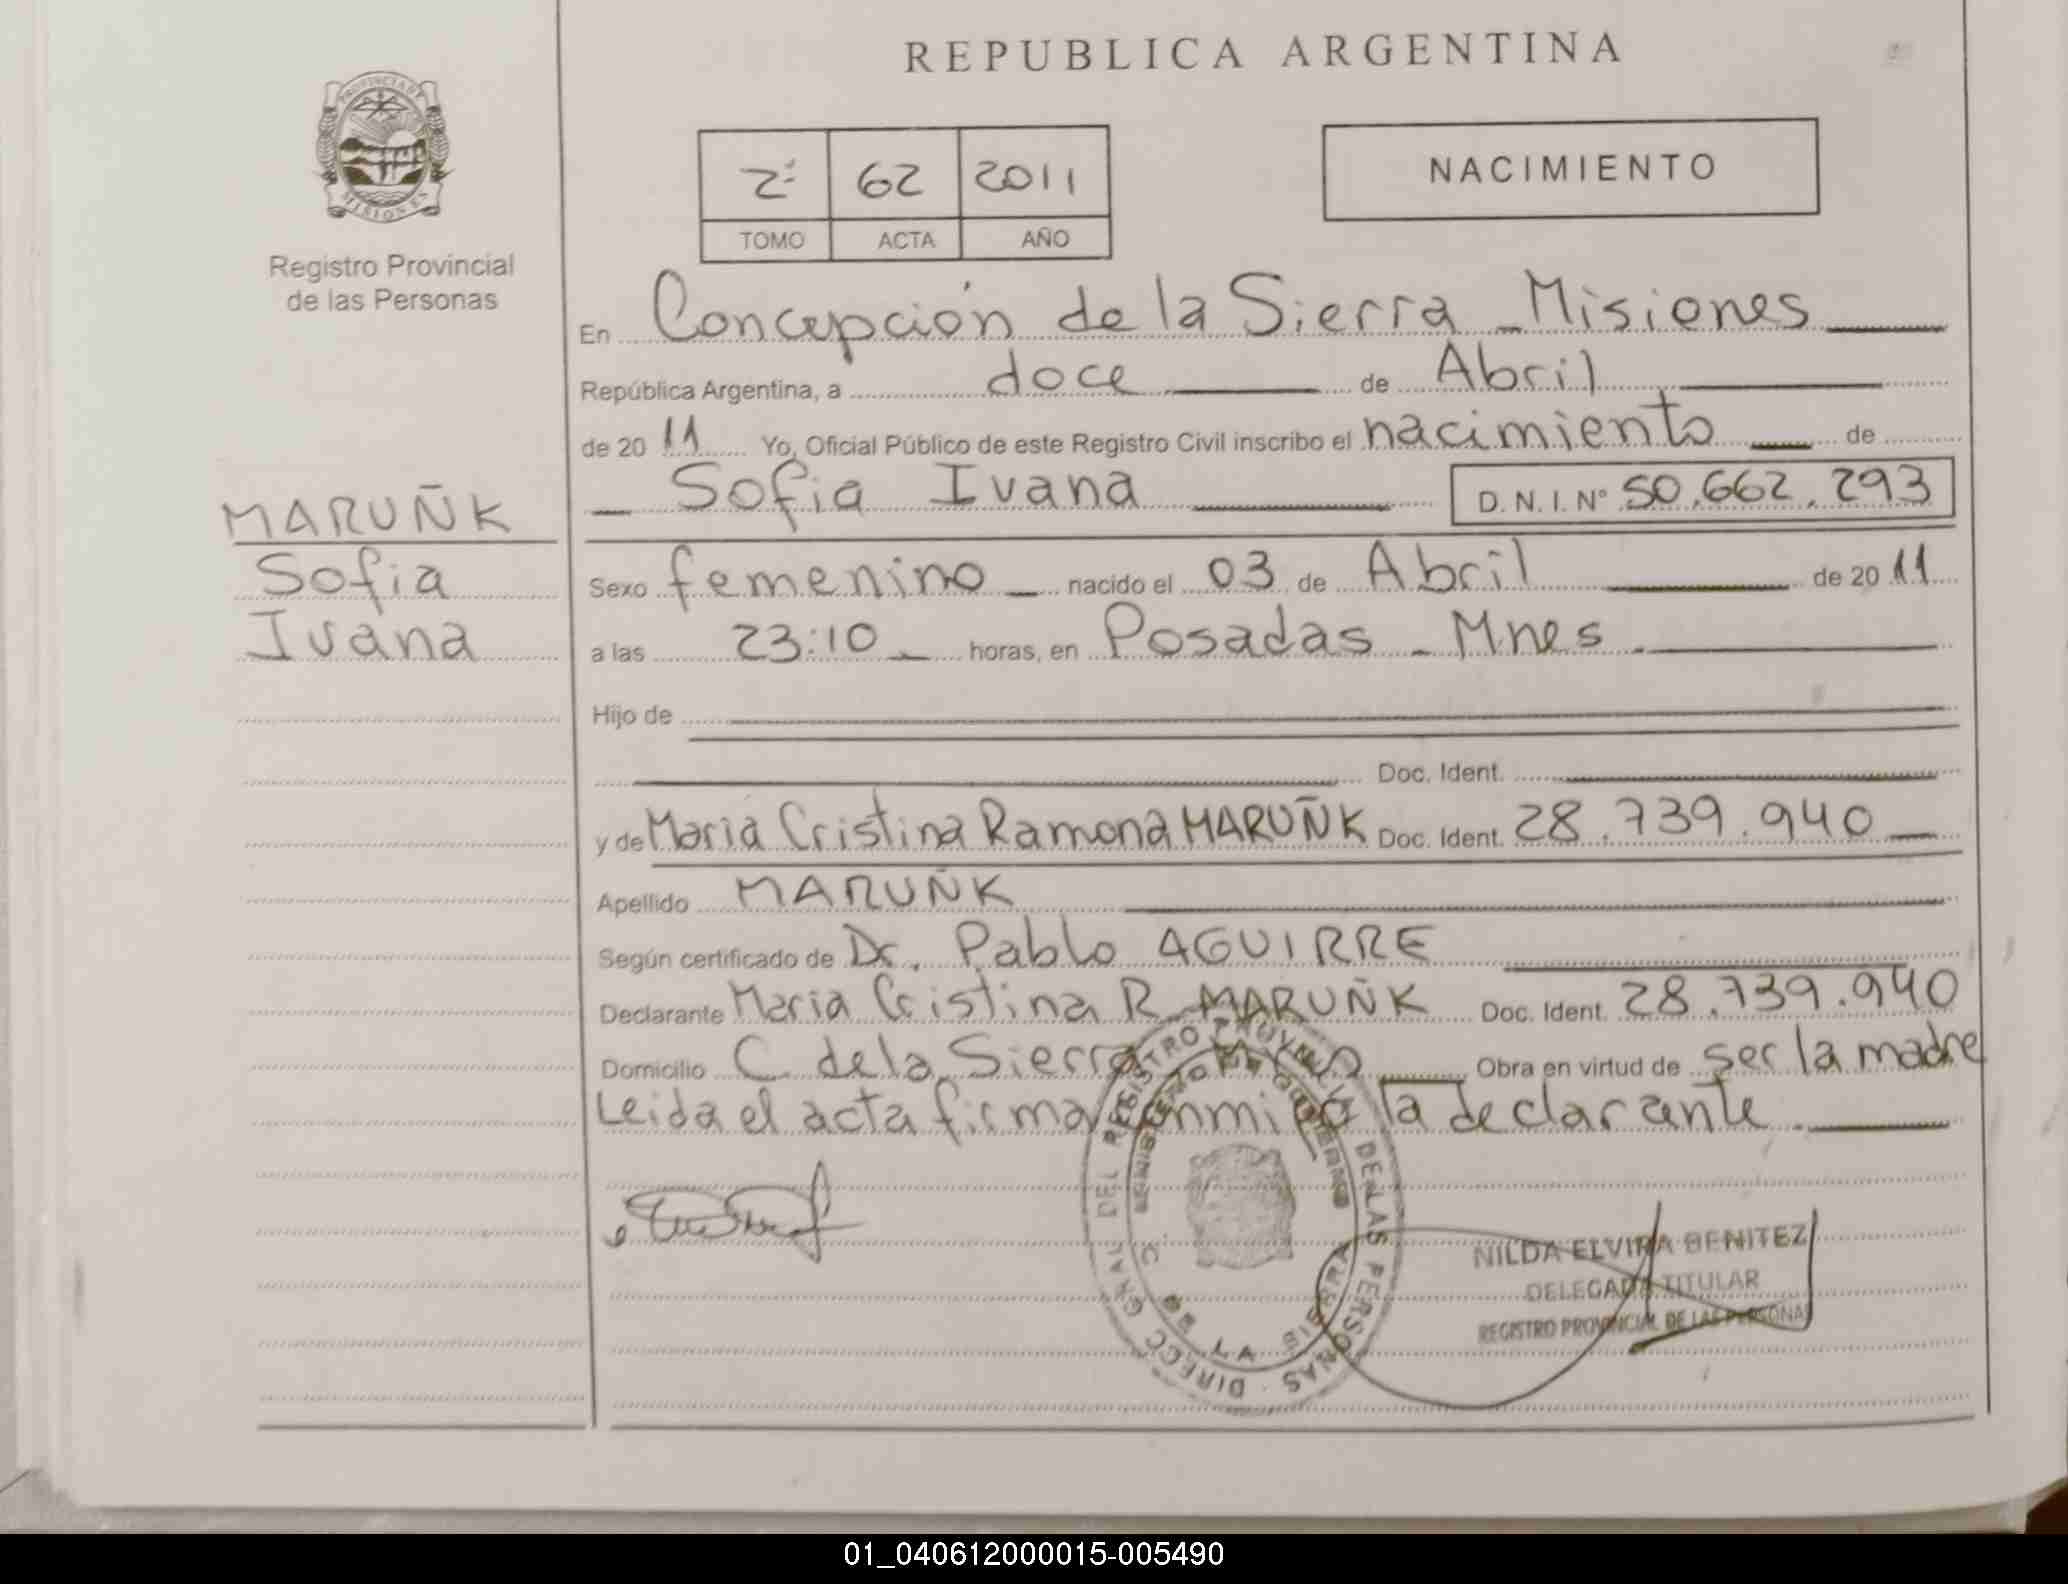 REPUBLICA ARGENTINA
PROVINCIA DE
MISIONES
Registro Provincial
de las Personas
2º 62 2011
TOMO ACTA AÑO
NACIMIENTO
En Concepción de la Sierra - Misiones
República Argentina, a doce de Abril
de 2011 Yo, Oficial Público de este Registro Civil inscribo el nacimiento de
Sofia Ivana D.N.I. Nº 50.662.293
MARUÑK
Sofia
Ivana
Sexo femenino nacido el 03 de Abril de 2011
a las 23:10 horas, en Posadas - Mnes.
Hijo de
Doc. Ident.
y de Maria Cristina Ramona MARUÑK Doc. Ident. 28.739.940
Apellido MARUÑK
Según certificado de Dr. Pablo AGUIRRE
Declarante Maria Cristina R. MARUÑK Doc. Ident. 28.739.940
Domicilio C. de la Sierra Obra en virtud de ser la madre
Leida el acta firma conmigo la declarante.
DIRECC. GRAL. DEL REGISTRO PROVINCIAL DE LAS PERSONAS
C. DE LA SIERRA
NILDA ELVIRA BENITEZ
DELEGADA TITULAR
REGISTRO PROVINCIAL DE LAS PERSONAS
01_040612000015-005490